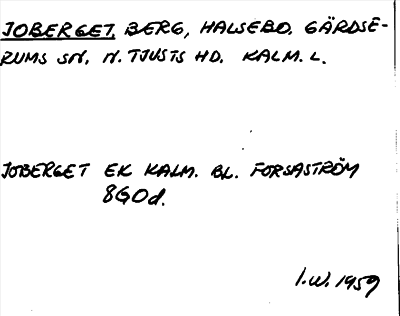 JOBERGET, BERG, HALSEBO. GÄRDSE-
RUMS SN. N. TJUSTS HD. KALM. L.
JOBERGET EK KALM. BL. FORSASTRÖM
8G0d.
I.W. 1959